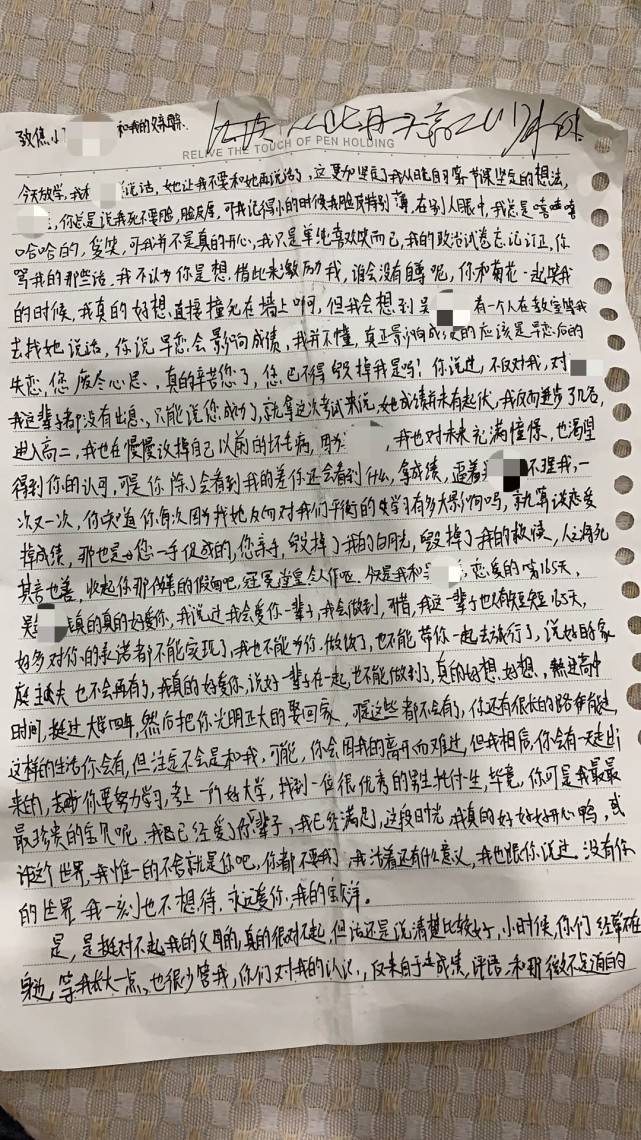 致焦小 和我的父母亲
RELIVE THE TOUCH OF PEN HOLDING
今天放学,我和 说话,她让我不要和她再说话了,这更加坚定了我从晚自习第一节课坚定的想法,
,你总是说我死不要脸,脸皮厚,可我记得小的时候我脸皮特别薄,在别人眼中,我总是嘻嘻嘻
哈哈哈的,爱笑,可我并不是真的开心,我只是单纯喜欢笑而已,我的政治试卷忘记订正,你
骂我的那些话,我不认为你是想借此来激励我,谁会没有自尊呢,你和菊花一起笑我
的时候,我真的好想直接撞死在墙上啊,但我会想到吴 有一个人在教室等我
去找她说话,你说早恋会影响成绩,我并不懂,真正影响成绩的应该是早恋后的
失恋,您废尽心思,真的辛苦您了,您巴不得毁掉我是吗?你说过,不反对我,对
我这辈子都没有出息,只能说您成功了,就拿这次考试来说,她成绩并未有起伏,我反而进步了几名,
进入高二,我也在慢慢改掉自己以前的坏毛病,因为 ,我也对未来充满憧憬,也渴望
得到你的认可,可是你除了会看到我的差你还会看到什么,拿成绩, 不理我,一
次又一次,你知道你每次因为我找她反而对我们平衡的学习有多大影响吗,就算谈恋爱
掉成绩,那也是您一手促成的,您亲手毁掉了我的白月光,毁掉了我的救赎,人之将死
其言也善,收起你那 的假面吧,冠冕堂皇令人作呕。今天是我和 恋爱的第165天,
吴 真的真的好爱你,我说过我会爱你一辈子,我会做到,可惜,我这一辈子也只有短短165天,
好多对你的承诺都不能实现了,我也不能为你做饭了,也不能带你一起去旅行了,说好的家
庭主夫也不会再有了,我真的好爱你,说好一辈子在一起,也不能做到了,真的好想,好想,熬过高中
时间,挺过大学四年,然后把你光明正大的娶回家,可这些都不会有了,你还有很长的路 走,
这样的生活你会有,但注定不会是和我,可能,你会因我的离开而难过,但我相信,你会有一天走出
来的,去 你要努力学习,考上一所好大学,找到一位很优秀的男生托付一生,毕竟,你可是我最最
最珍贵的宝贝呢,我已经爱了你一辈子,我已经满足,这段时光,我真的好好好开心鸭,或
许这个世界,我惟一的不舍就是你吧,你都不要我了,我活着还有什么意义,我也跟你说过,没有你
的世界,我一刻也不想待,永远爱你,我的宝 。
是,是挺对不起我的父母的,真的很对不起,但话还是说清楚比较好,小时候,你们经常不在
身边,等我长大一点,也很少管我,你们对我的认识,仅来自于 成绩,评语,和那微不足道的